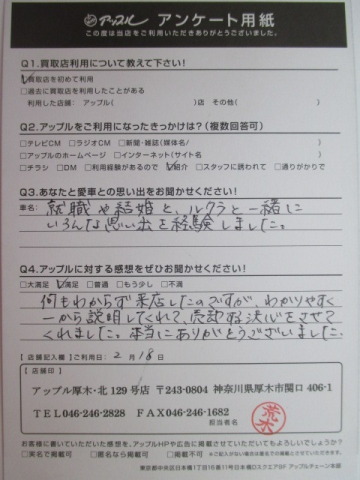 アップル アンケート用紙
この度は当店をご利用いただきありがとうございました。
Q1.買取店利用について教えて下さい!
☑買取店を初めて利用
□過去に買取店を利用したことがある
利用した店舗: アップル( )店 その他( )
Q2.アップルをご利用になったきっかけは?(複数回答可)
□テレビCM □ラジオCM □新聞・雑誌(媒体名/ )
□アップルのホームページ □インターネット(サイト名 )
□チラシ □DM □利用経験があるので ☑紹介 □スタッフに誘われて □通りがかりで
Q3.あなたと愛車との思い出をお聞かせください!
車名:
就職や結婚と、ルクラと一緒に
いろんな思い出を経験しました。
Q4.アップルに対する感想をぜひお聞かせください!
□大満足 ☑満足 □普通 □もう少し □不満
何もわからず来店したのですが、わかりやすく
一から説明してくれて、売却する決心をさせて
くれました。本当にありがとうございました。
【店舗記入欄】ご利用日: 2月18日
【店舗印】
アップル厚木・北129号店 〒243-0804 神奈川県厚木市関口406-1
TEL046-246-2828 FAX046-246-1682
担当者名
荒木
お客様に書いていただいた感想を、アップルHPや広告に掲載させていただいてもよろしいでしょうか?
□実名で掲載可 □匿名なら掲載可 □掲載不可 ※ご記入がない場合は匿名での掲載とさせていただきます。
東京都中央区日本橋1丁目16番11号日本橋DスクエアBF アップルチェーン本部